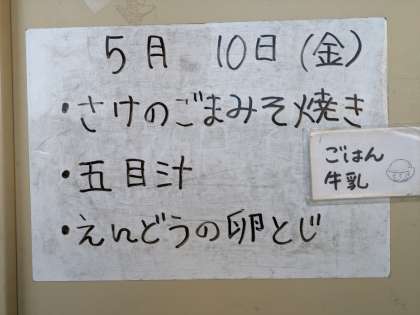 5月 10日(金)
・さけのごまみそ焼き
・五目汁
・えんどうの卵とじ
ごはん
牛乳